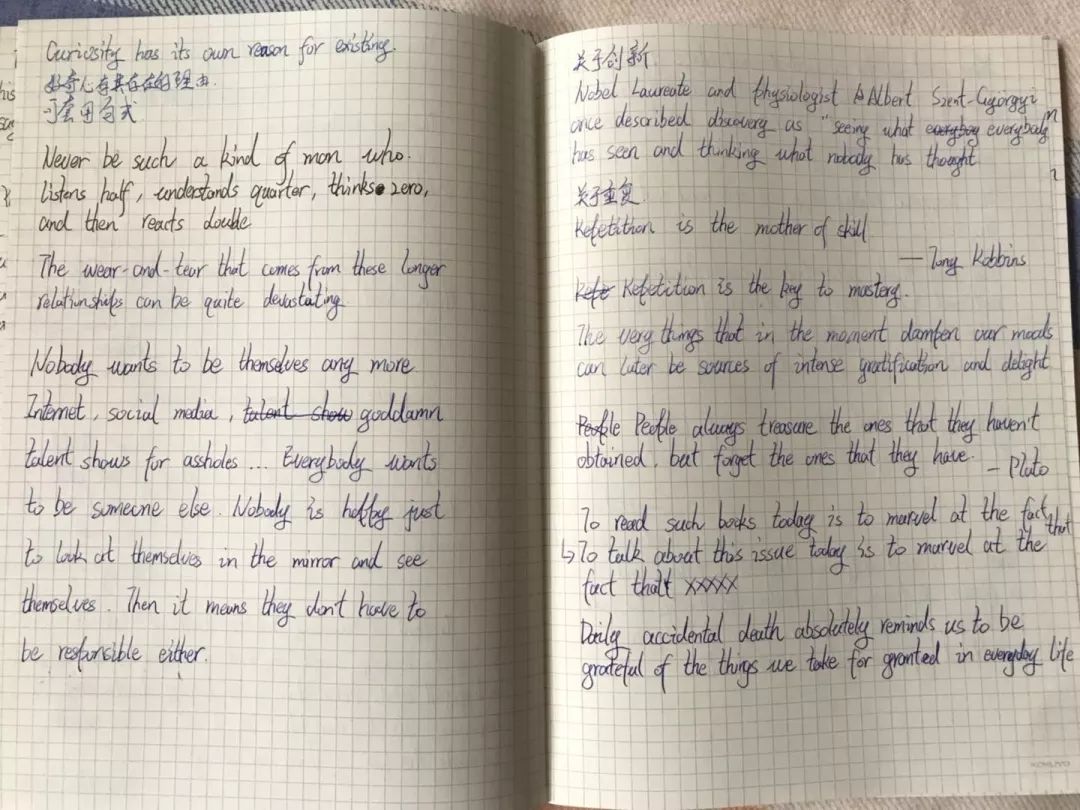 Curiosity has its own reason for existing.
好奇心有其存在的理由.
可套用句式
Never be such a kind of man who.
listens half, understands quarter, thinks zero,
and then reacts double
The wear-and-tear that comes from these longer
relationships can be quite devastating.
Nobody wants to be themselves any more
Internet, social media, talent show goddamn
talent shows for assholes ... Everybody wants
to be someone else. Nobody is happy just
to look at themselves in the mirror and see
themselves. Then it means they don't have to
be responsible either.
关于创新.
Nobel Laureate and physiologist Albert Szent-Györgyi
once described discovery as "seeing what everyboy everybody
has seen and thinking what nobody has thought"
关于重复.
Repetition is the mother of skill
— Tony Robbins
Repe Repetition is the key to mastery.
The very things that in the moment dampen our moods
can later be sources of intense gratification and delight
People People always treasure the ones that they haven't
obtained, but forget the ones that they have. — Plato
To read such books today is to marvel at the fact that
↳ To talk about this issue today is to marvel at the
fact that xxxxx
Daily accidental death absolutely reminds us to be
grateful of the things we take for granted in everyday life
KOKUYO